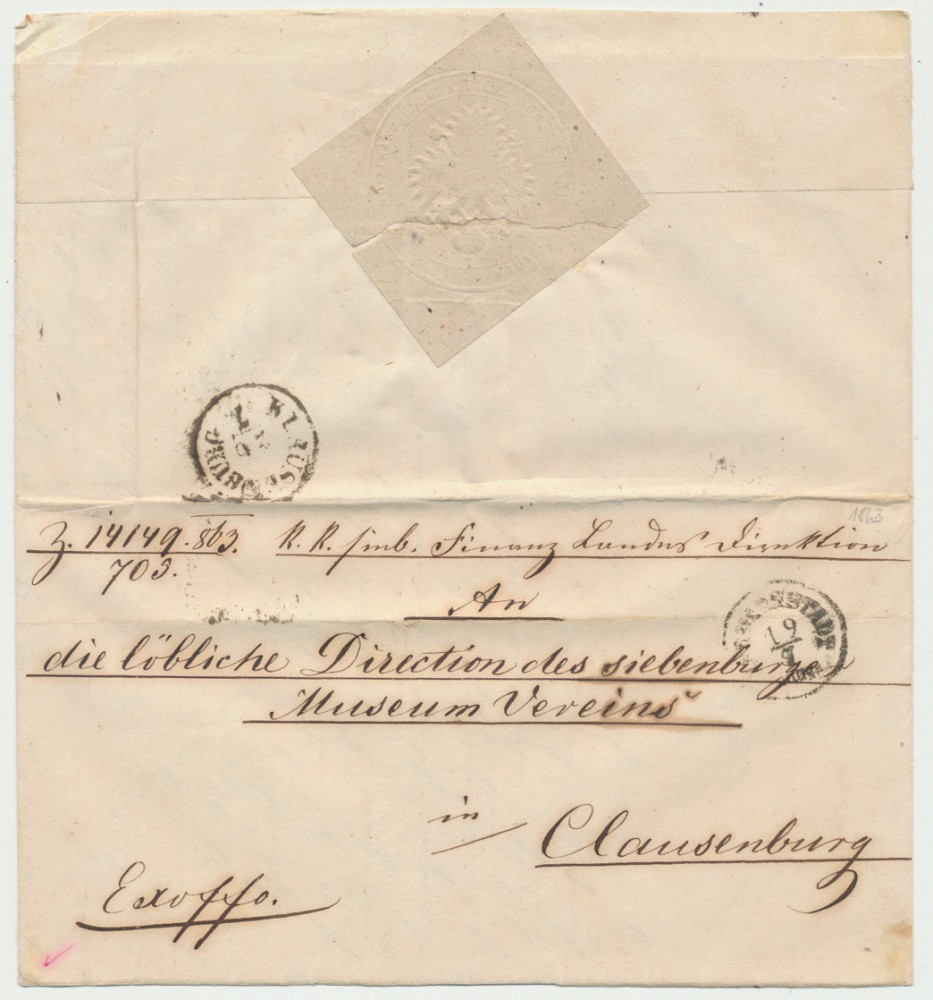 KLAUSENBURG
1863
Z. 14149.863. K. K. sieb. Finanz Landes Direktion
703.
An
HERMANNSTADT
19
die löbliche Direction des siebenburger
Museum Vereins
in Clausenburg
Exoffo.